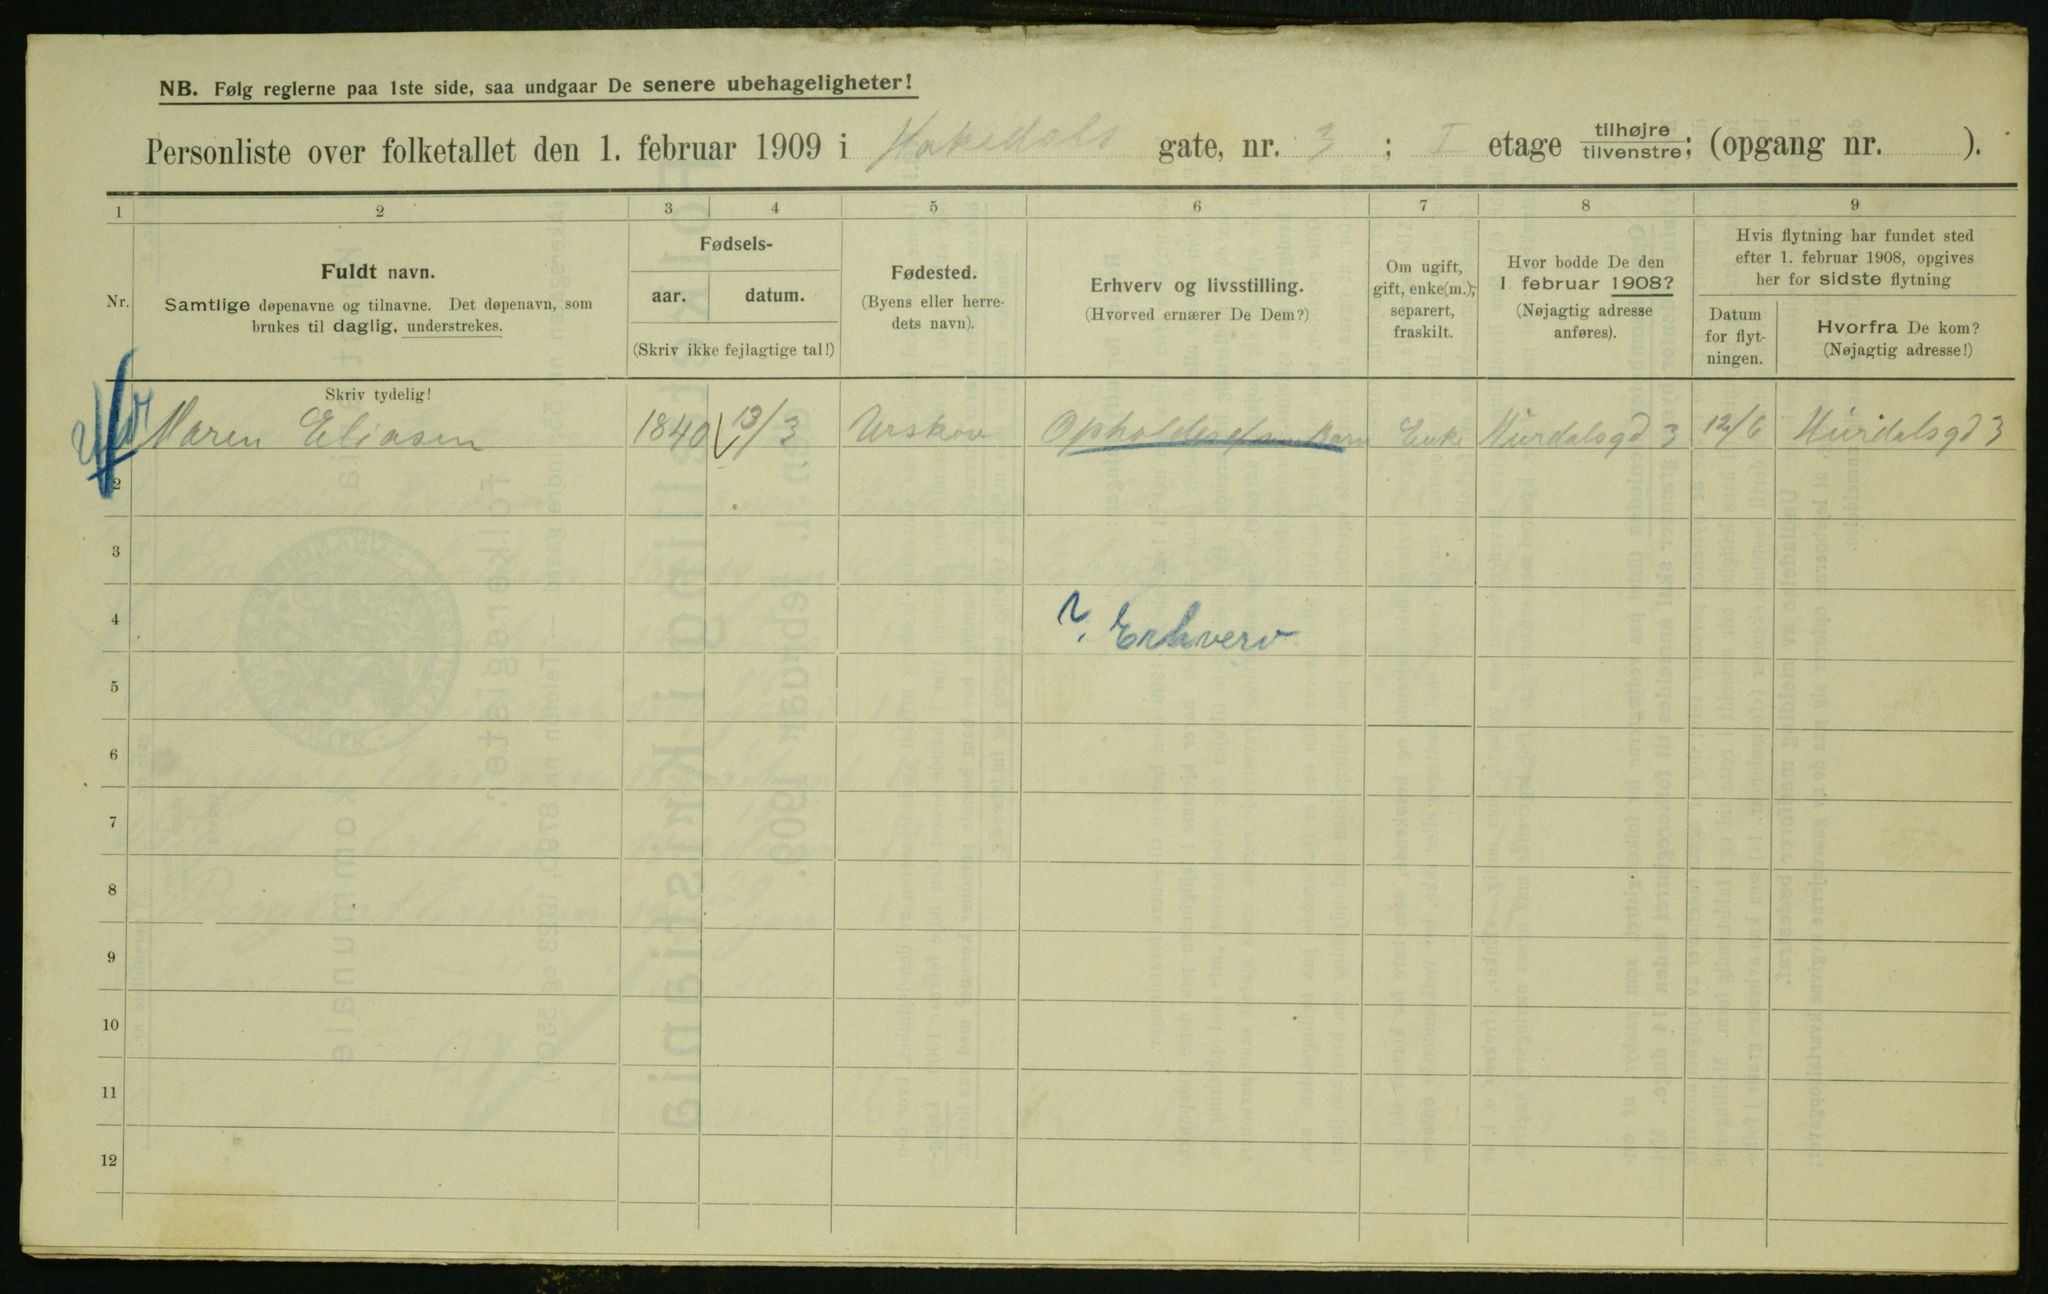 NB. Følg reglerne paa 1ste side, saa undgaar De senere ubehageligheter!
Personliste over folketallet den 1. februar 1909 i Hakedals gate, nr. 3; I etage tilhøjre/tilvenstre; (opgang nr. ).
1 2 3 4 5 6 7 8 9
Nr.
Fuldt navn.
Samtlige døpenavne og tilnavne. Det døpenavn, som
brukes til daglig, understrekes.
Fødsels-
aar. datum.
(Skriv ikke fejlagtige tal!)
Fødested.
(Byens eller herre-
dets navn).
Erhverv og livsstilling.
(Hvorved ernærer De Dem?)
Om ugift,
gift, enke(m.),
separert,
fraskilt.
Hvor bodde De den
1. februar 1908?
(Nøjagtig adresse
anføres).
Hvis flytning har fundet sted
efter 1. februar 1908, opgives
her for sidste flytning
Datum
for flyt-
ningen.
Hvorfra De kom?
(Nøjagtig adresse!)
Skriv tydelig!
Maren Eliasen 1840 13/3 Urskov Opholdes af sin Barn Enke Hurdalsgd 3 12/6 Hurdalsgd 3
2
3
4
? Erhverv
5
6
7
8
9
10
11
12